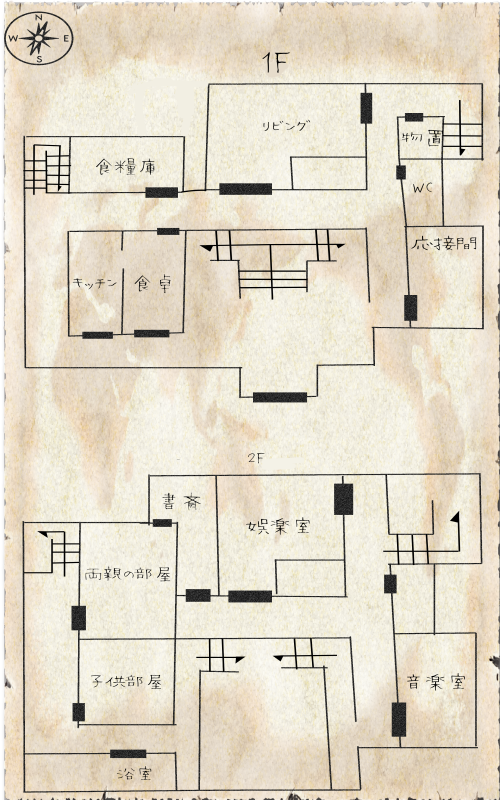 N
W E
S
1F
リビング
物置
食糧庫
WC
応接間
キッチン
食卓
2F
書斎
娯楽室
両親の部屋
子供部屋
音楽室
浴室